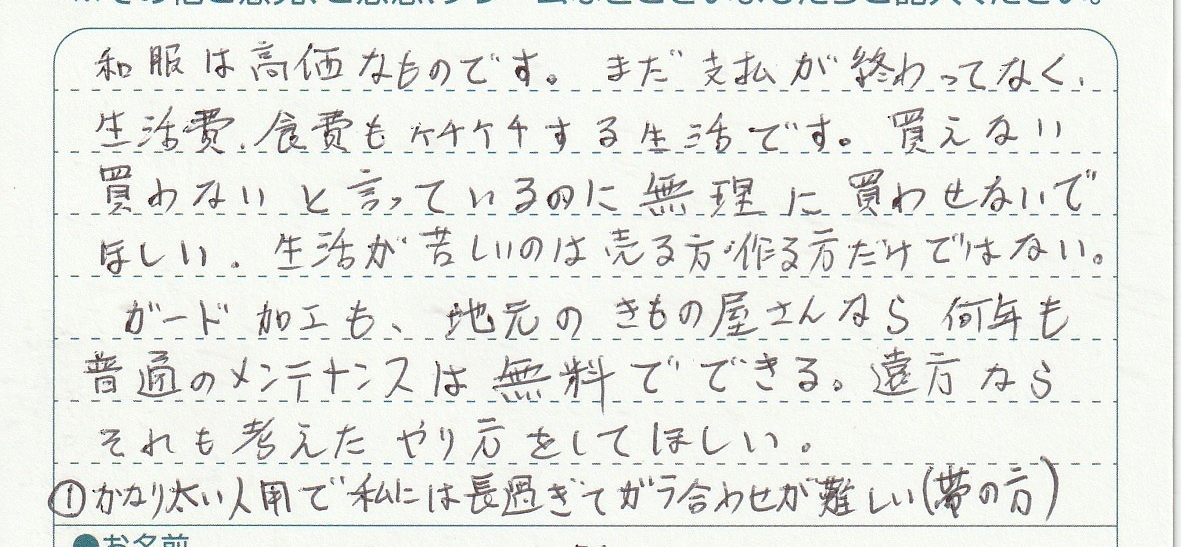 その他ご意見、ご感想、クレームなどございましたらご記入ください。
和服は高価なものです。まだ支払が終わってなく、
生活費、食費もケチケチする生活です。買えない
買わないと言っているのに無理に買わせないで
ほしい。生活が苦しいのは売る方・作る方だけではない。
ガード加工も、地元のきもの屋さんなら何年も
普通のメンテナンスは無料でできる。遠方なら
それも考えたやり方をしてほしい。
①かなり太い人用で私には長過ぎてガラ合わせが難しい(帯の方)
●お名前